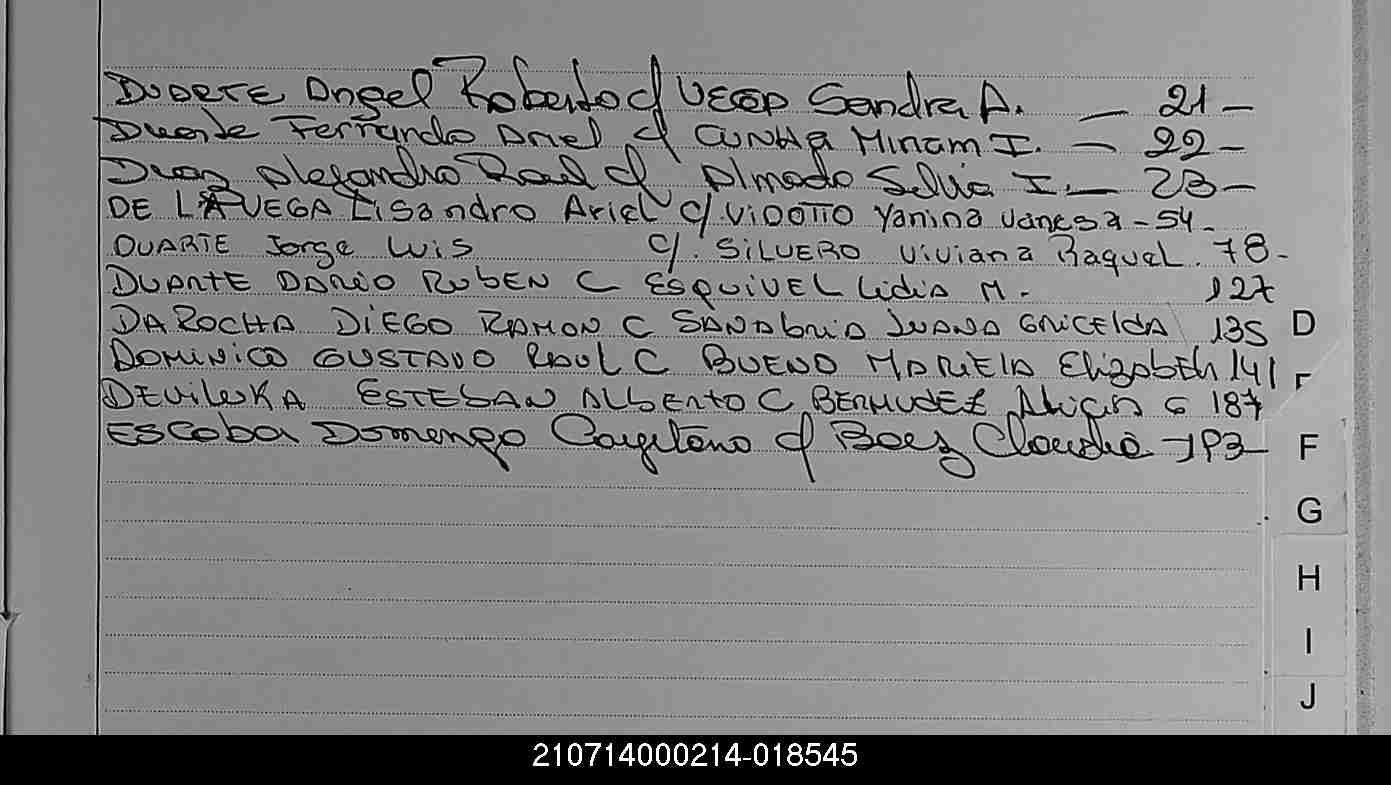 DUARTE Angel Roberto c/ Sandra A. — 21 —
Duarte Fernando Ariel c/ CUNHA Miriam I. — 22 —
Alejandro Raul c/ Almado Silvia I. — 23 —
DE LA VEGA Lisandro Ariel c/ VIDOTTO Yanina Vanesa - 54 -
DUARTE Jorge Luis c/. SILVERO Viviana Raquel. 78 -
DUARTE DARIO RUBEN C ESQUIVEL Lidia M. 127
DA ROCHA DIEGO RAMON C SANABRIA JUANA GRICELDA 135 D
DOMINICO GUSTAVO RAUL C BUENO MARIELA Elizabeth 141
ESTEBAN ALBERTO C BERMUDEZ Alicia G 187
ESCOBAR Domingo Cayetano c/ Baez Claudia — 193 — F
G
H
I
J
210714000214-018545